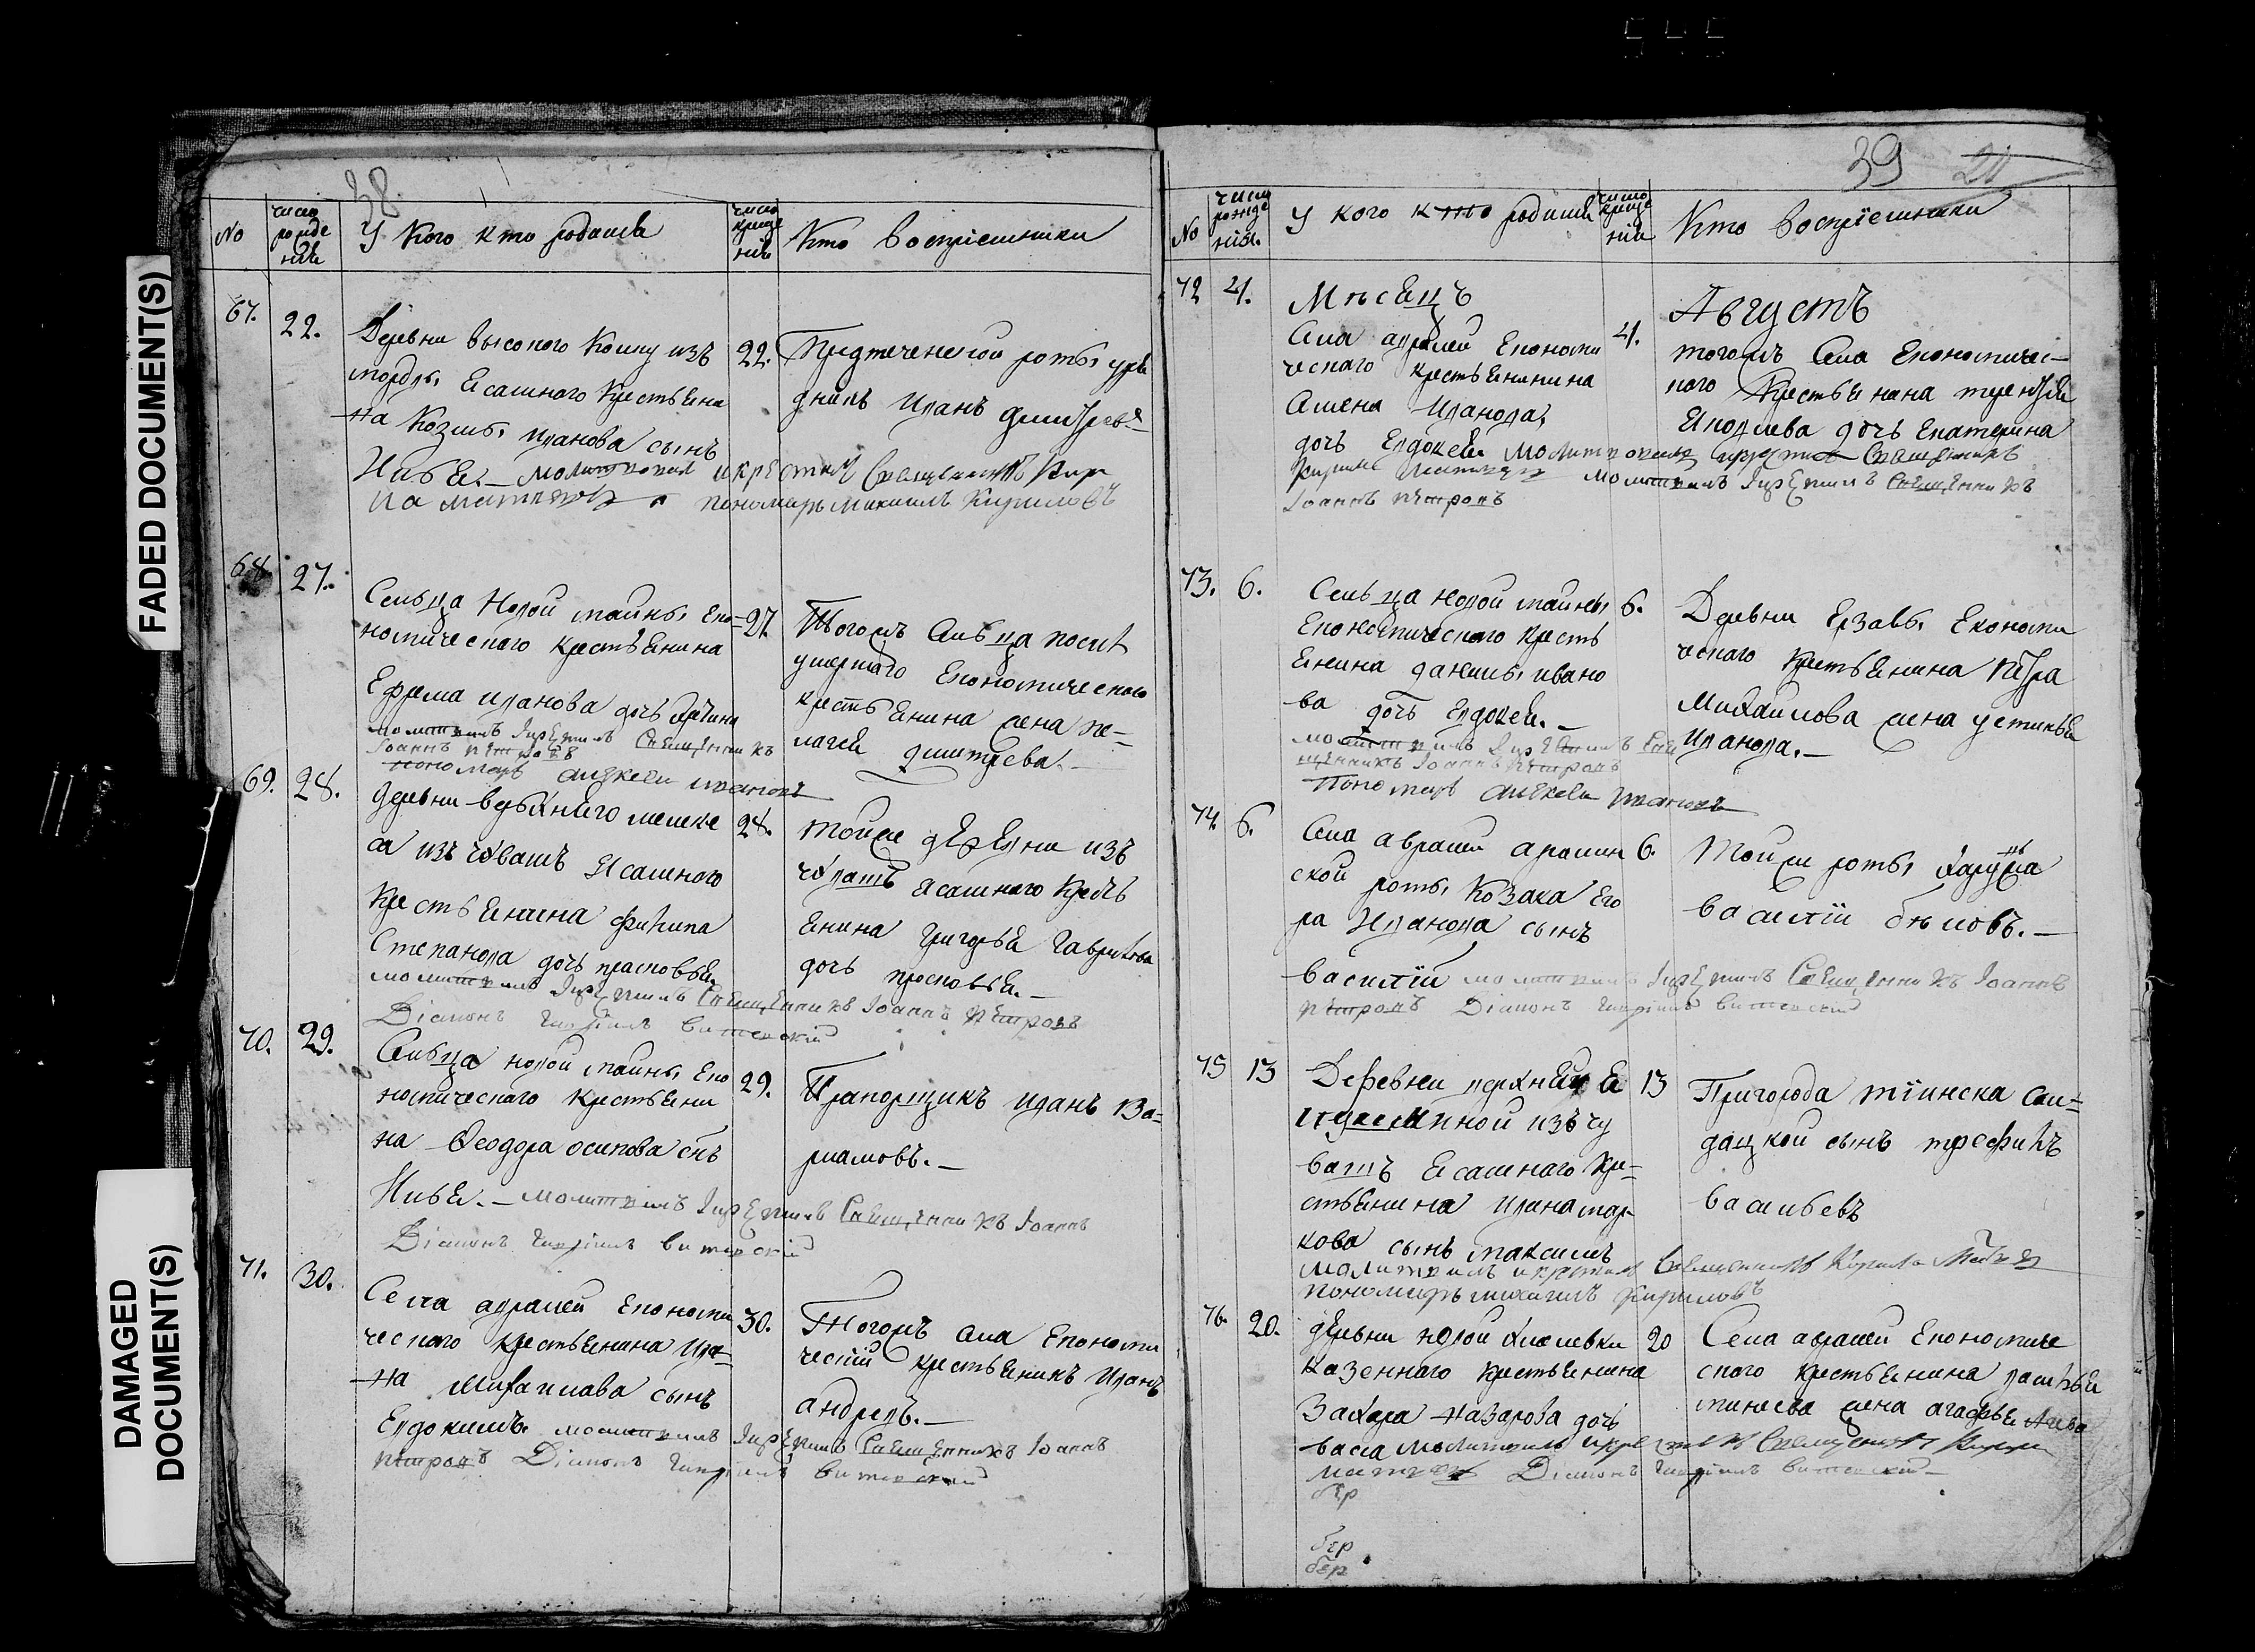 545
FADED DOCUMENT(S)
DAMAGED DOCUMENT(S)
38
No
число рожде нія
У кого кто родился
число креще нія
Кто воспріемники
67.
22.
Деревни высокого Колку изъ
мордвы Ясашного крестьяни
на Козмы Иванова сынъ
Илья. — молитвовал и крестил Священникъ Кири
ла Матвеевъ пономарь Михаилъ Кириловъ
22.
Предтеченской роты уря
дникъ Иванъ Дмитрев
68.
27.
Сельца Новой майны Еко=
номического крестьянина
Ефрема Иванова дочь
молитвилъ крестилъ Священникъ
Іоаннъ Петровъ
пономарь Алексеи Ивановъ
27.
Тогожъ Сельца после
умершаго Економического
крестьянина жена Пе=
лагея Дмитрева. —
69.
28.
деревни верхнего мелеке
са изъ чувашъ Ясашного
крестьянина Филипа
Степанова дочь прасковья
молитвилъ крестилъ Священникъ Іоаннъ Петровъ
Діаконъ Гавріилъ Витевский
28.
тойже деревни изъ
чувашъ ясашнаго крестъ
янина Григорья Гаврилова
дочь просковья. —
70.
29.
Сельца новой майны Еко
номического крестьяни
на Ѳеодора осипова снъ
Илья. — молитвилъ крестилъ Священникъ Іоаннъ
Діаконъ Гавріилъ Витевский
29.
Прапорщикъ Иванъ Ва=
рламовъ. —
71.
30.
Села авралей Економи
ческаго крестьянина Ива=
на Михаилава сынъ
Евдокимъ. молитвилъ крестилъ Священникъ Іоаннъ
Петровъ Діаконъ Гавріилъ Витевский
30.
Тогожъ села Економи
ческій крестьянинъ Иванъ
андревъ. —
39 21
No
число рожде нія.
У кого кто родился
число креще нія
Кто воспріемники
72
4.
Мѣсецъ
Августъ
Села авралеи Економи
ческаго крестьянинина
Семена Иванова
дочь Евдокея молитвовалъ крестилъ Священникъ
Кирила Матвеевъ молитвилъ крестилъ Священникъ
Іоаннъ Петровъ
4.
тогожъ Села Економичес—
каго крестьянина терентья
Яковлева дочь Екатерина
73.
6.
Сельца новой майны
Економического кресть
янина данилы ивано
ва дочь Евдокея. —
молитвилъ крестилъ Свя
щенникъ Іоаннъ Петровъ
Пономарь Алексеи Ивановъ
6.
Деревни Ерзавы Економи
ческаго крестьянина Петра
Михаилова жена устинья
Иванова. —
74.
6.
Села авралеи
ской роты козака Его
ра Иванова сынъ
василій молитвилъ крестилъ Священникъ Іоаннъ
Петровъ Діаконъ Гавріилъ Витевский
6.
Тойже роты
василій бѣловъ. —
75
13
Деревни
изъ чу
вашъ Ясашнаго кре=
стьянина Ивана мар
кова сынъ максимъ
молитвилъ и крестилъ Священникъ Кирила
пономарь михаилъ Кириловъ
13
Пригорода тіинска Сол=
дацкой сынъ трефилъ
васильевъ
76.
20.
деревни новой Хмелевки
казеннаго крестьянина
Захара назарова дочь
васса молитвилъ крестилъ Священникъ Кирила
Матвеевъ Діаконъ Гавріилъ Витевский
бер
бер
бер
20
Села авралей Економиче
ского крестьянина васильи
минеева жена агафья